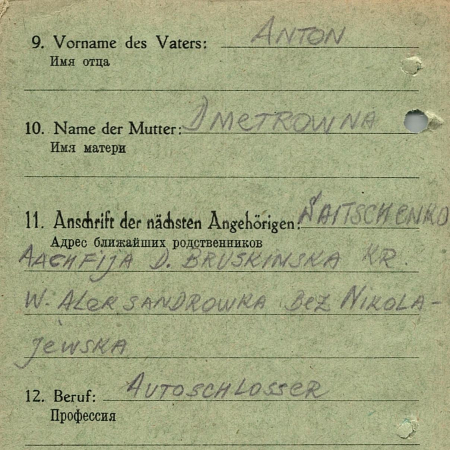 9. Vorname des Vaters: ANTON
Имя отца
10. Name der Mutter: DMETROWNA
Имя матери
11. Anschrift der nächsten Angehörigen: SAITSCHENKO
Адрес ближайших родственников
D. BRUSKINSKA KR.
W. ALEKSANDROWKA BEZ NIKOLA-
JEWSKA
12. Beruf: AUTOSCHLOSSER
Профессия